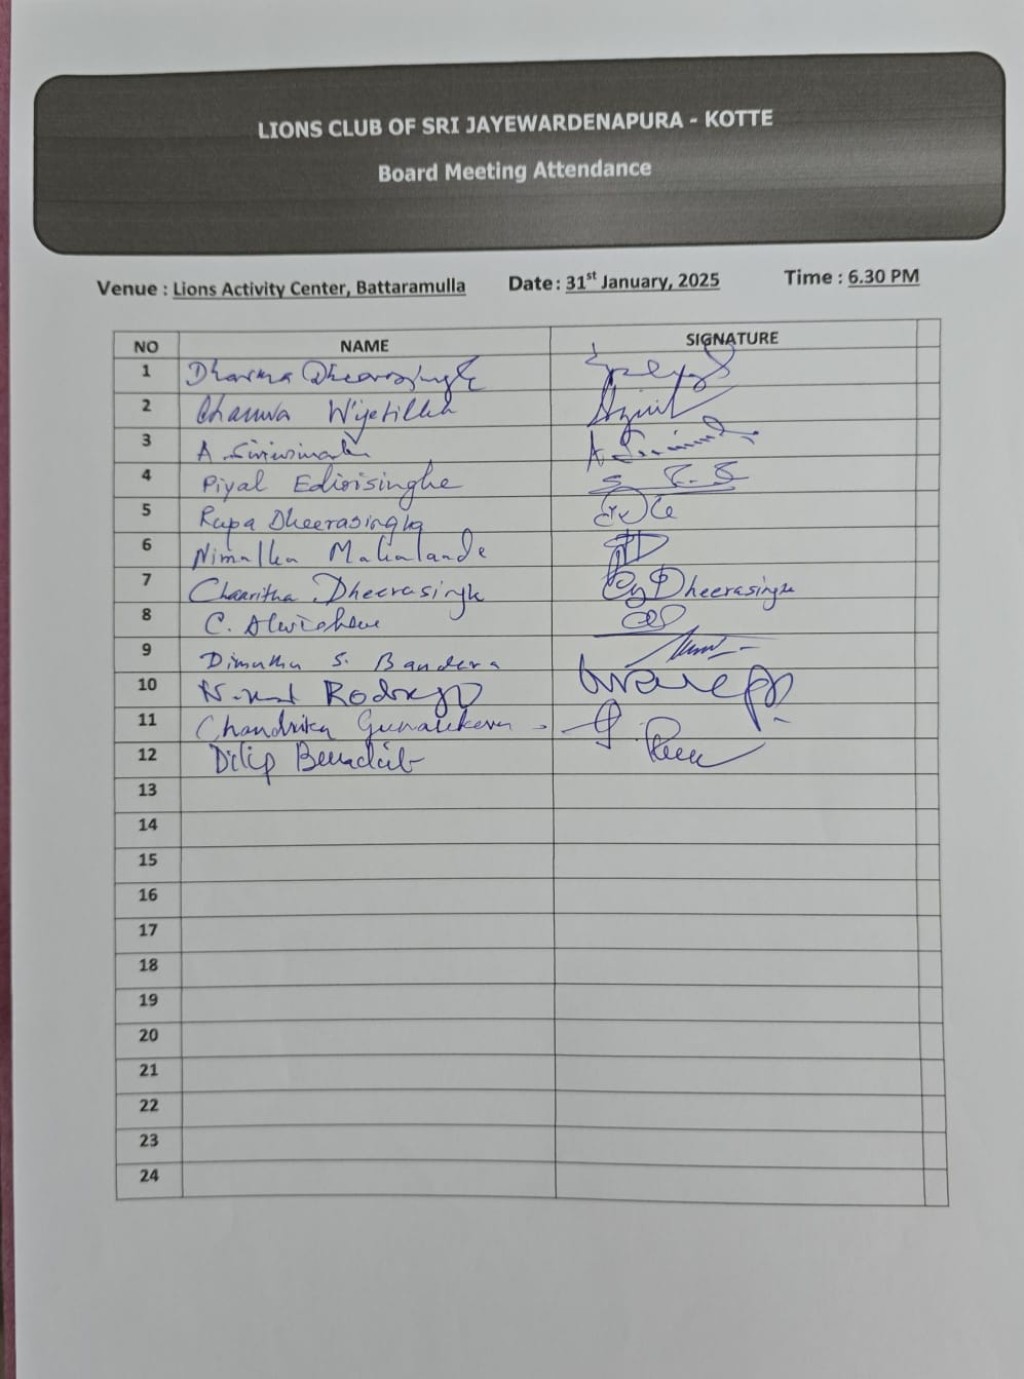 LIONS CLUB OF SRI JAYEWARDENAPURA - KOTTE
Board Meeting Attendance
Venue : Lions Activity Center, Battaramulla Date : 31st January, 2025 Time : 6.30 PM
NO NAME SIGNATURE
1 Dharma Dheerasingh
2 Channa Wijetillek
3 A.
4 Piyal Edirisinghe
5 Rupa Dheerasingha
6 Nimalka
7 Chaaritha Dheerasingh Dheerasingh
8 C.
9 Dimuthu S. Bandara
10 Rodrigo
11 Chandrika Gunasekera
12 Dilip
13
14
15
16
17
18
19
20
21
22
23
24